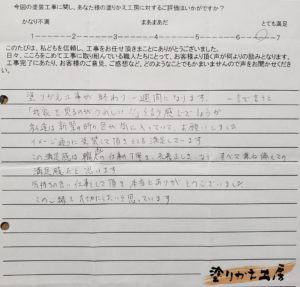 今回の塗装工事に関し、あなた様の塗りかえ工房に対するご評価はいかがですか?
かなり不満 まあまあだ とても満足
1 2 3 4 5 6 7
このたびは、私どもを信頼し、工事をお任せ頂きまことにありがとうございました。
日々、こころをこめて工事に取り組んでいる職人たちにとって、お客様より頂く声が何よりの励みとなります。
工事完了にあたり、お客様のご意見、ご感想など、どのようなことでもかまいませんので声をお聞かせください。
塗りかえ工事が終わり一週間になります。一言で言うと
「我家を見るのがうれしい!!」そう言う感じでしょうか
新築の時の色が気に入っていて、お願いしました
イメージ通りに塗装して頂きとても満足しています
この満足感は職人さんの仕事の丁寧さ すべて兼ね備えての
満足感だと思います
気持ちの良い仕事をして頂き本当にありがとうございました
この家を大切にしたいと思っています
塗りかえ工房